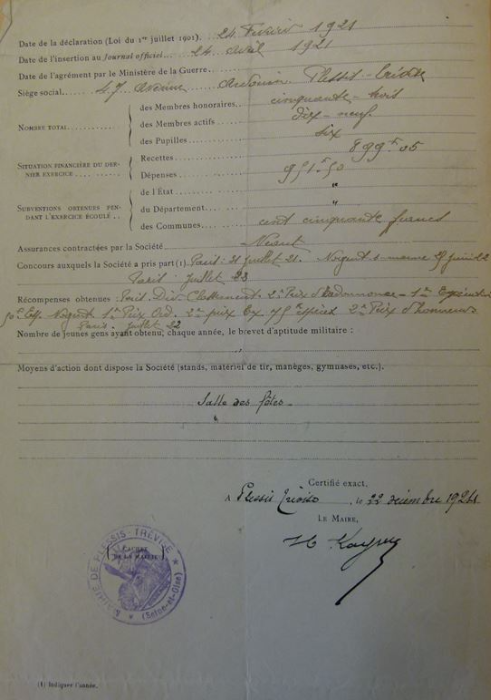 Date de la déclaration (Loi du 1er juillet 1901). 24 Février 1921
Date de l'insertion au Journal officiel. 24 avril 1921
Date de l'agrément par le Ministère de la Guerre.
Siège social 47 Avenue Ardouin Plessis-Trévise
NOMBRE TOTAL
des Membres honoraires cinquante-huit
des Membres actifs dix-neuf
des Pupilles six
SITUATION FINANCIÈRE DU DERNIER EXERCICE
Recettes 899f05
Dépenses 951f50
SUBVENTIONS OBTENUES PENDANT L'EXERCICE ÉCOULÉ
de l'État "
du Département "
des Communes cent cinquante francs
Assurances contractées par la Société Néant
Concours auxquels la Société a pris part (1). Paris: juillet 21. Nogent s-marne juin 22
Paris: juillet 23
Récompenses obtenues Paris Div. Classement 2e Prix 1er
Nogent 1er Prix 2e prix 2e Prix d'honneur
Paris. juillet 22
Nombre de jeunes gens ayant obtenu, chaque année, le brevet d'aptitude militaire :
Moyens d'action dont dispose la Société (stands, matériel de tir, manèges, gymnases, etc.).
Salle des fêtes
Certifié exact,
A Plessis Trévise, le 22 décembre 1924
LE MAIRE,
CACHET DE LA MAIRIE
MAIRIE DE PLESSIS-TRÉVISE
(Seine-et-Oise)
(1) Indiquer l'année.